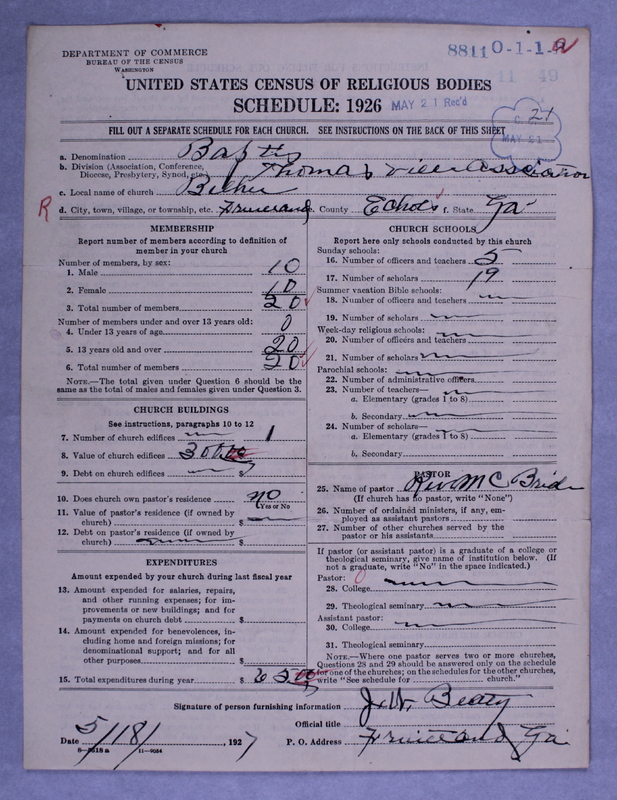 DEPARTMENT OF COMMERCE
BUREAU OF THE CENSUS
WASHINGTON
88110-1-1
UNITED STATES CENSUS OF RELIGIOUS BODIES
SCHEDULE: 1926
MAY 21 Rec'd
24
MAY 21
FILL OUT A SEPARATE SCHEDULE FOR EACH CHURCH. SEE INSTRUCTIONS ON THE BACK OF THIS SHEET
a. Denomination
b. Division (Association, Conference, Diocese, Presbytery, Synod, etc.) Thomasville Association
c. Local name of church
R d. City, town, village, or township, etc. Fruitland e. County Echols f. State Ga
MEMBERSHIP
Report number of members according to definition of
member in your church
Number of members, by sex:
1. Male 10
2. Female 10
3. Total number of members 20
Number of members under and over 13 years old:
4. Under 13 years of age 0
5. 13 years old and over 20
6. Total number of members 20
NOTE.—The total given under Question 6 should be the
same as the total of males and females given under Question 3.
CHURCH BUILDINGS
See instructions, paragraphs 10 to 12
7. Number of church edifices 1
8. Value of church edifices
9. Debt on church edifices $
10. Does church own pastor's residence no
(Yes or No)
11. Value of pastor's residence (if owned by
church) $
12. Debt on pastor's residence (if owned by
church) $
EXPENDITURES
Amount expended by your church during last fiscal year
13. Amount expended for salaries, repairs,
and other running expenses; for im-
provements or new buildings; and for
payments on church debt $
14. Amount expended for benevolences, in-
cluding home and foreign missions; for
denominational support; and for all
other purposes $
15. Total expenditures during year $
CHURCH SCHOOLS
Report here only schools conducted by this church
Sunday schools:
16. Number of officers and teachers 5
17. Number of scholars 19
Summer vacation Bible schools:
18. Number of officers and teachers
19. Number of scholars
Week-day religious schools:
20. Number of officers and teachers
21. Number of scholars
Parochial schools:
22. Number of administrative officers
23. Number of teachers—
a. Elementary (grades 1 to 8)
b. Secondary
24. Number of scholars—
a. Elementary (grades 1 to 8)
b. Secondary
PASTOR
25. Name of pastor Rev McBride
(If church has no pastor, write "None")
26. Number of ordained ministers, if any, em-
ployed as assistant pastors
27. Number of other churches served by the
pastor or his assistants
If pastor (or assistant pastor) is a graduate of a college or
theological seminary, give name of institution below. (If
not a graduate, write "No" in the space indicated.)
Pastor:
28. College
29. Theological seminary
Assistant pastor:
30. College
31. Theological seminary
NOTE.—Where one pastor serves two or more churches,
Questions 28 and 29 should be answered only on the schedule
for one of the churches; on the schedules for the other churches,
write "See schedule for church."
Signature of person furnishing information J. W. Beaty
Official title
Date 5/18/, 1927 P. O. Address Fruitland, Ga
8—9618 a 11—9054